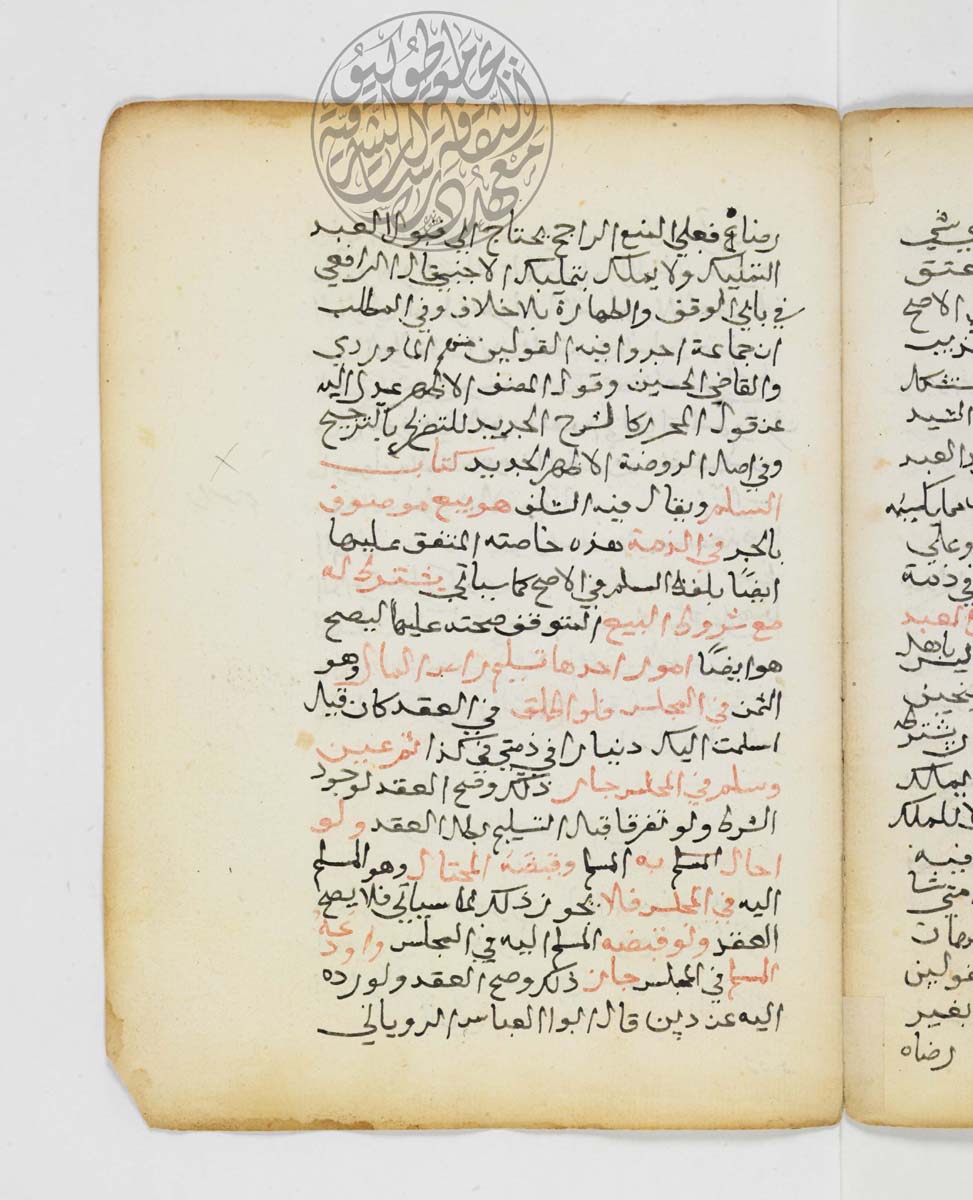 رضاه فعلي المنع الراجح يحتاج الي قبول العبد
التمليك ولا يملك بتمليك الاجنبي قال الرافعي
في بابي الوقف والطهارة بلا خلاف وفي المطلب
ان جماعة اجروا فيه القولين منهم الماوردي
والقاضي الحسين وقول المصنف الاظهر عدل اليه
عن قول المحرر كالشرح الجديد للتصريح بالترجيح
وفي اصل الروضة الاظهر الجديد كتاب
السلم ويقال فيه السلف هو بيع موصوف
بالجر في الذمة هذه خاصته المتفق عليها
ايضا بلفظ السلم في الاصح كما سياتي يشترط له
مع شروط البيع المتوقف صحته عليها ليصح
هو ايضًا امور احدها تسليم راس المال وهو
الثمن في المجلس فلو اطلق في العقد كان قال
اسلمت اليك دينارا في ذمتي في كذا ثم عين
وسلم في المجلس جاز ذلك وصح العقد لوجود
الشرط ولو تفرقا قبل التسليم بطل العقد ولو
احال المسلم به المسلم وقبضه المحتال وهو المسلم
اليه في المجلس فلا يجوز ذلك لما سياتي فلا يصح
العقد ولو قبضه المسلم اليه في المجلس واودعه
المسلم في المجلس جاز ذلك وصح العقد ولو رده
اليه عن دين قال ابو العباس الروياني
شي
عتق
الاصح
السيد
العبد
وعلي
في ذمة
العبد
يشترط
المالك
للملك
فيه
متي شا
قولين
بغير
رضاه